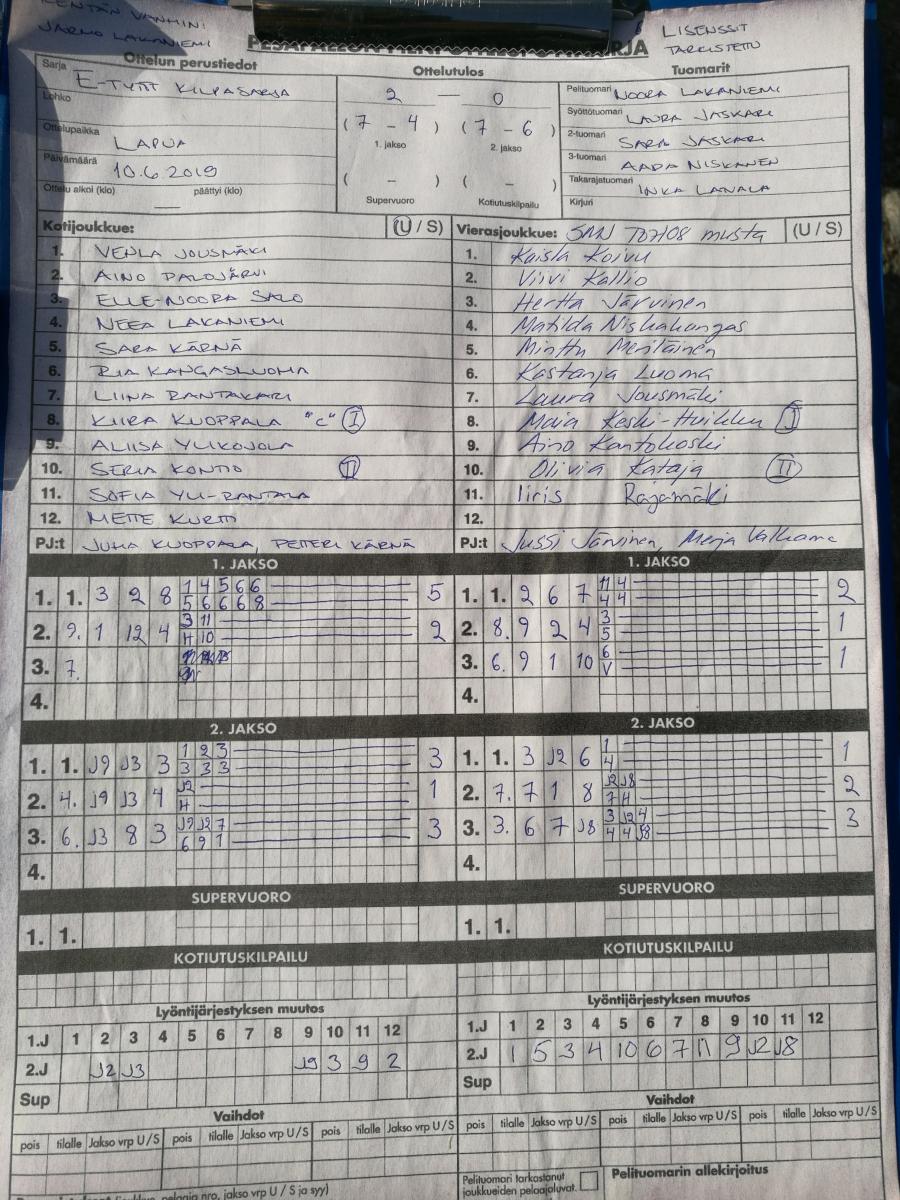 KENTÄN VANHIN:
JARMO LAKANIEMI
LISENSSIT
TARKISTETTU
Ottelun perustiedot
Sarja E-TYTT KILPASARJA
Lohko
Ottelupaikka LAPUA
Päivämäärä 10.6.2019
Ottelu alkoi (klo) — päättyi (klo)
Ottelutulos
2 — 0
(7 - 4) (7 - 6)
1. jakso 2. jakso
( - ) ( - )
Supervuoro Kotiutuskilpailu
Tuomarit
Pelituomari NOORA LAKANIEMI
Syöttötuomari LAURA JASKARI
2-tuomari SARA JASKARI
3-tuomari AADA NISKANEN
Takarajatuomari INKA LANALA
Kirjuri
Kotijoukkue: (U / S)
1. VENLA JOUSMÄKI
2. AINO PALOJÄRVI
3. ELLE-NOORA SALO
4. NEEA LAKANIEMI
5. SARA KÄRNÄ
6. RIA KANGASLUOMA
7. LIINA RANTAKARI
8. KIIRA KUOPPALA "C" I
9. ALIISA YLIKOJOLA
10. SERIA KONTIO II
11. SOFIA YLI-RANTALA
12. METTE KURTTI
PJ:t JUHA KUOPPALA, PETTERI KÄRNÄ
Vierasjoukkue: SMJ T07/08 musta (U / S)
1. Kaisla Koivu
2. Viivi Kallio
3. Hertta Järvinen
4. Matilda Niskakangas
5. Minttu Meriläinen
6. Kastanja Luoma
7. Laura Jousmäki
8. Maia Keski-Huikku I
9. Aino Kantokoski
10. Olivia Kataja II
11. Iiris Rajamäki
12.
PJ:t Jussi Järvinen, Merja Valkama
1. JAKSO
1. 1. 3 2 8 1 4 5 6 6 5
5 6 6 6 8
2. 9. 1 12 4 3 11 2
H 10
3. 7.
4.
1. JAKSO
1. 1. 2 6 7 11 4 2
4 4
2. 8. 9 2 4 3 1
5
3. 6. 9 1 10 6 1
V
4.
2. JAKSO
1. 1. J9 J3 3 1 2 3 3
3 3 3
2. 4. J9 J3 4 J2 1
H
3. 6. J3 8 3 J9 J2 7 3
6 9 1
4.
2. JAKSO
1. 1. 3 J2 6 1 1
4
2. 7. 7 1 8 J2 J8 2
7 H
3. 3. 6 7 J8 3 J2 4 3
4 4 J8
4.
SUPERVUORO
1. 1.
SUPERVUORO
1. 1.
KOTIUTUSKILPAILU
KOTIUTUSKILPAILU
Lyöntijärjestyksen muutos
1.J 1 2 3 4 5 6 7 8 9 10 11 12
2.J J2 J3 J9 3 9 2
Sup
Lyöntijärjestyksen muutos
1.J 1 2 3 4 5 6 7 8 9 10 11 12
2.J 1 5 3 4 10 6 7 11 9 J2 J8
Sup
Vaihdot
pois tilalle Jakso vrp U / S pois tilalle Jakso vrp U / S pois tilalle Jakso vrp U / S
Vaihdot
pois tilalle Jakso vrp U / S pois tilalle Jakso vrp U / S pois tilalle Jakso vrp U / S
pelaaja nro, jakso vrp U / S ja syy)
Pelituomari tarkastanut
joukkueiden pelaajaluvat.
Pelituomarin allekirjoitus